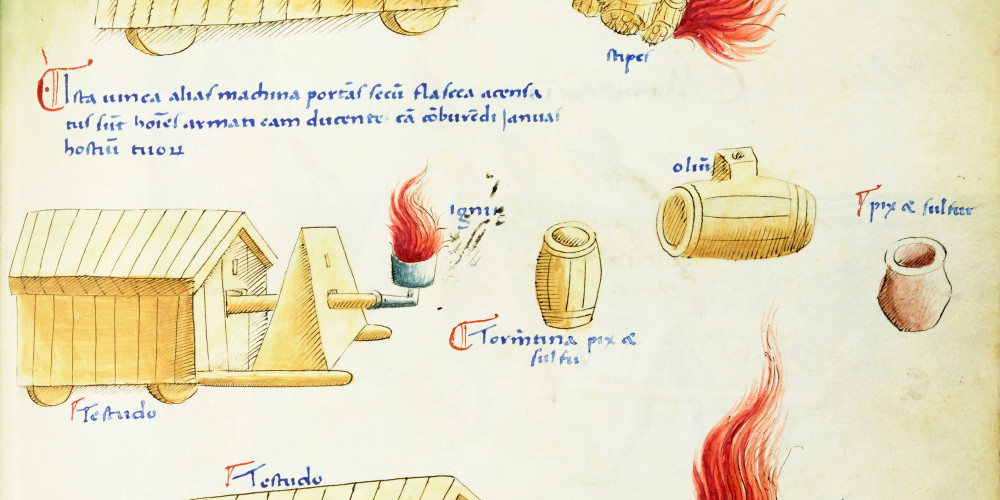 stipes
Ista vinea alias machina portãs secũ flascea acensa
tus sũt hoĩes armati eam ducente cã cõburẽdi Januas
hostiũ tuoꝝ
oliũ
ignis
pix & sulfur
Tormẽtina pix &
sulfu
Testudo
Testudo